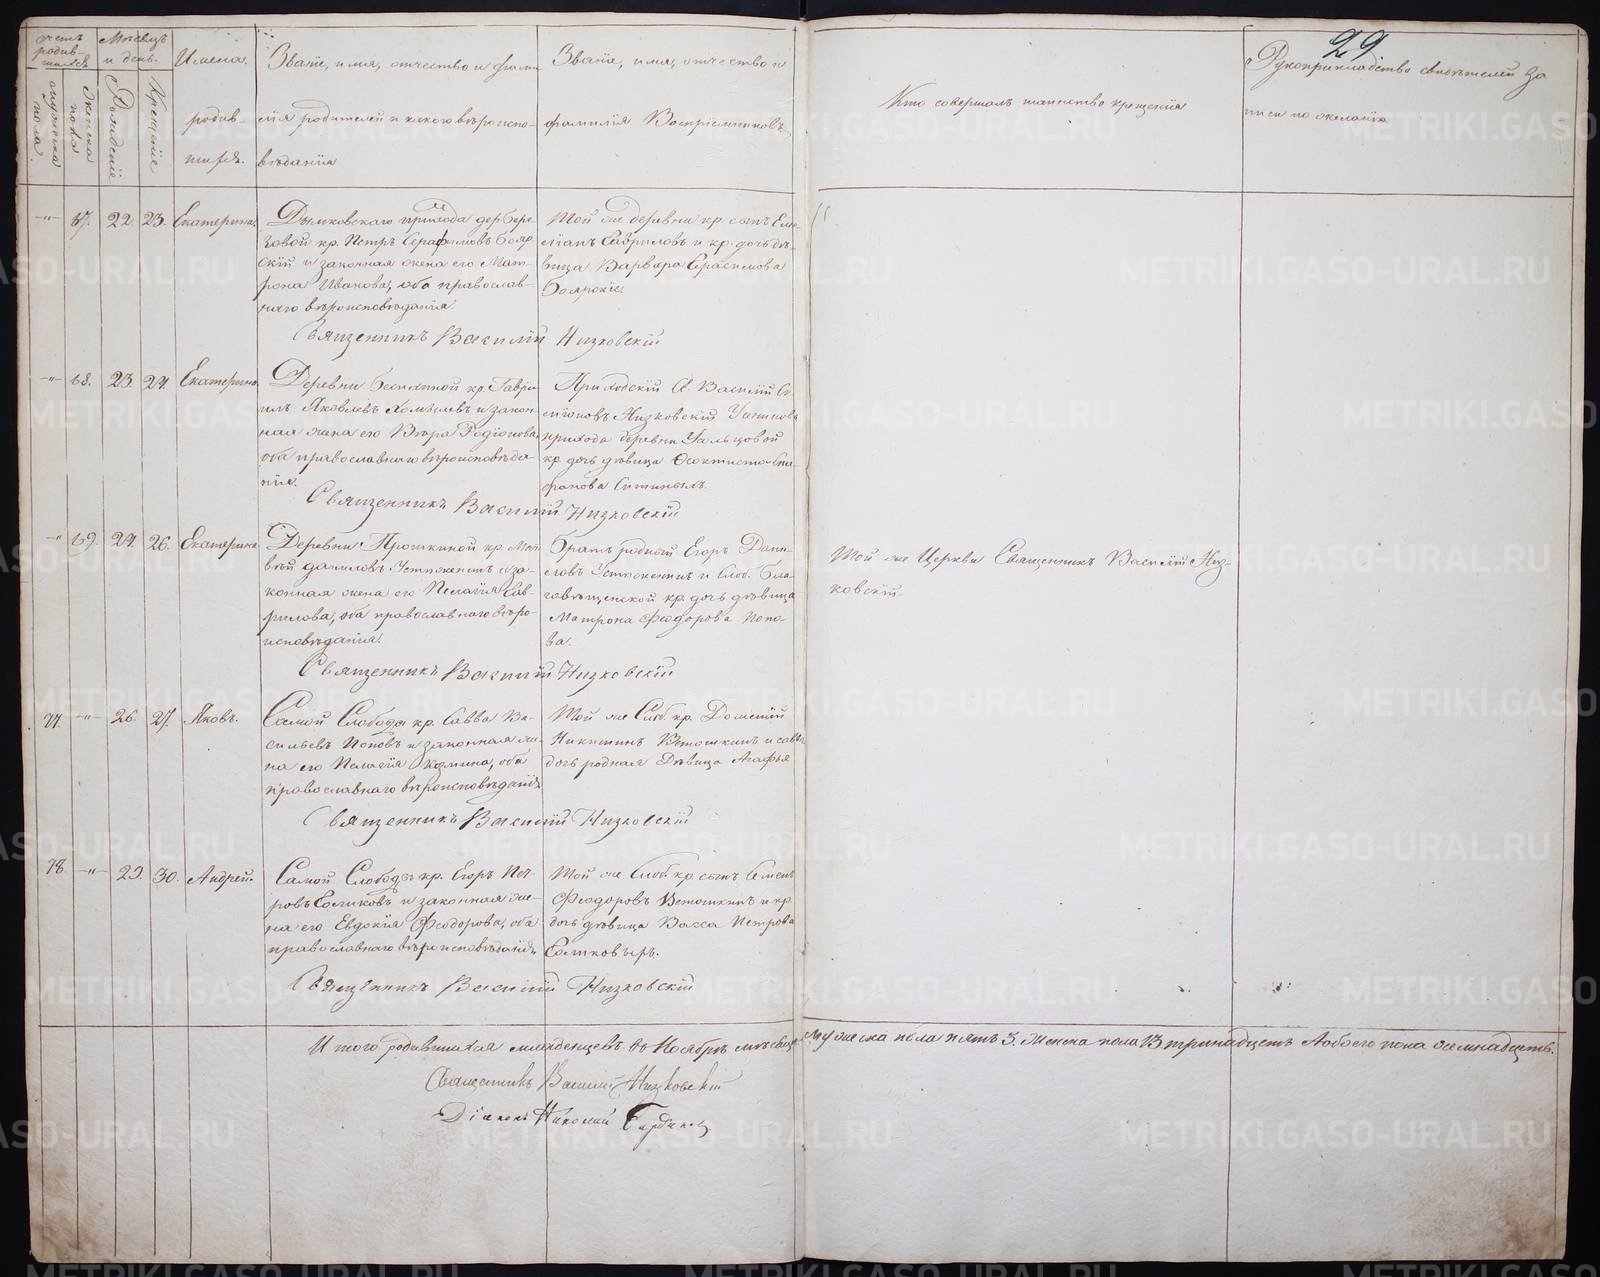 29
счетъ родив-
шихся
мужеска пола
женска пола
Мѣсяцъ и день.
Рожденіе
Крещеніе
Имена
родив-
шихся.
Званіе, имя, отчество и фами-
лія родителей и какого вѣроиспо-
вѣданія
Званіе, имя, отчество и
фамилія Воспріемниковъ
Кто совершалъ таинство крещенія
Рукоприкладство свидѣтелей за
писи по желанію
-"- 67. 22 23. Екатерина
Дымковскаго прихода дер Бере-
зовой кр. Петръ Серафимовъ Бояр-
скій и законная жена его Мат-
рона Иванова, оба православ-
наго вѣроисповѣданія.
Той же деревни кр. сынъ Еме-
ліанъ Гавриловъ и кр. дочь дѣ-
вица Варвара Герасимова
Боярскіе.
Священникъ Василій Низковскій
-"- 68. 23. 24. Екатерина
Деревни кр. Гаври-
илъ Яковлевъ и закон-
ная жена его Вѣра Родіонова,
оба православнаго вѣроисповѣда-
нія.
Приходскій Василій Си-
меоновъ Низковскій
прихода деревни Усольцовой
кр. дочь дѣвица Феоктиста Сте-
фанова
Священникъ Василій Низковскій
-"- 69. 24. 26. Екатерина
Деревни Прошкиной кр. Мат-
вѣй Даниловъ Устюженинъ и за-
конная жена его Пелагія Гав-
рилова, оба православнаго вѣро-
исповѣданія.
Братъ родной Егоръ Дани-
ловъ Устюженинъ и Слоб. Бла-
говѣщенской кр. дочь дѣвица
Матрона Феодорова Попо-
ва.
Священникъ Василій Низковскій
Той же Церкви Священникъ Василій Низ-
ковскій.
77. -"- 26. 27. Яковъ.
Самой Слободы кр. Савва Ва-
сильевъ Поповъ и законная же-
на его Пелагія Козмина, оба
православнаго вѣроисповѣданія
Той же Слоб. кр. Доментій
Никитинъ Ветошкинъ и Саввы
дочь родная Дѣвица Агафья
Священникъ Василій Низковскій
78. -"- 29. 30. Андрей.
Самой Слободы кр. Егоръ Пет-
ровъ и законная же-
на его Евдокія Феодорова, оба
православнаго вѣроисповѣданія
Той же Слоб кр. сынъ Семенъ
Феодоровъ Ветошкинъ и кр.
дочь дѣвица Васса Петрова
Священникъ Василій Низковскій
Итого родившихся младенцевъ въ Ноябрѣ мѣсяцѣ мужеска пола пять 5. Женска пола 13 тринадцать А обоего пола осмнадцать.
Священникъ Василій Низковскій
Діаконъ Николай
METRIKI.GASO-URAL.RU